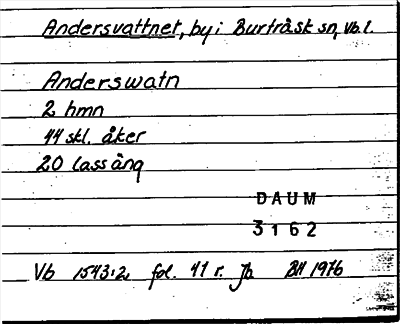 Andersvattnet, by i Burträsk sn, Vb. l.
Anderswatn
2 hmn
44 skl. åker
20 lass äng
DAUM
3162
Vb 1543:2, fol. 41 r. Jb BH 1976